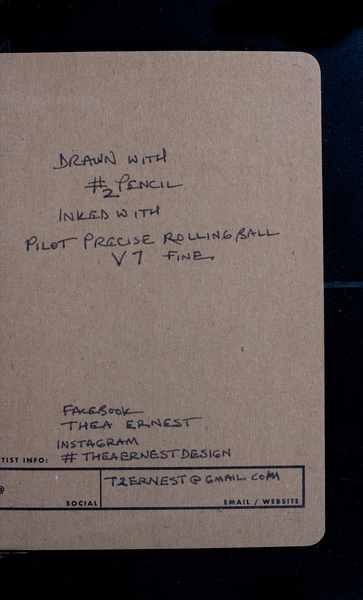 DRAWN WITH
#2 PENCIL
INKED WITH
PILOT PRECISE ROLLING BALL
V7 FINE
FACEBOOK
THEA ERNEST
INSTAGRAM
TIST INFO: # THEAERNESTDESIGN
@ T2ERNEST@GMAIL.COM
SOCIAL EMAIL / WEBSITE